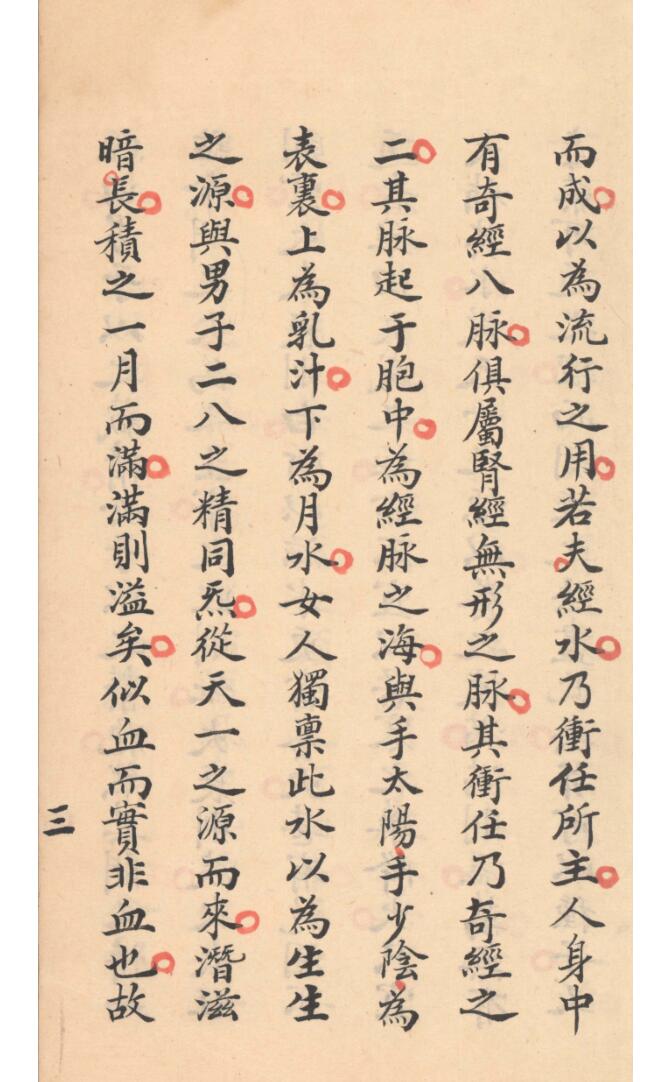 而成以為流行之用若夫經水乃衝任所主人身中
有奇經八脉俱屬腎經無形之脉其衝任乃奇經之
二其脉起于胞中為經脉之海與手太陽手少陰為
表裏上為乳汁下為月水女人獨禀此水以為生生
之源與男子二八之精同炁從天一之源而來潛滋
暗長積之一月而滿滿則溢矣似血而實非血也故
三